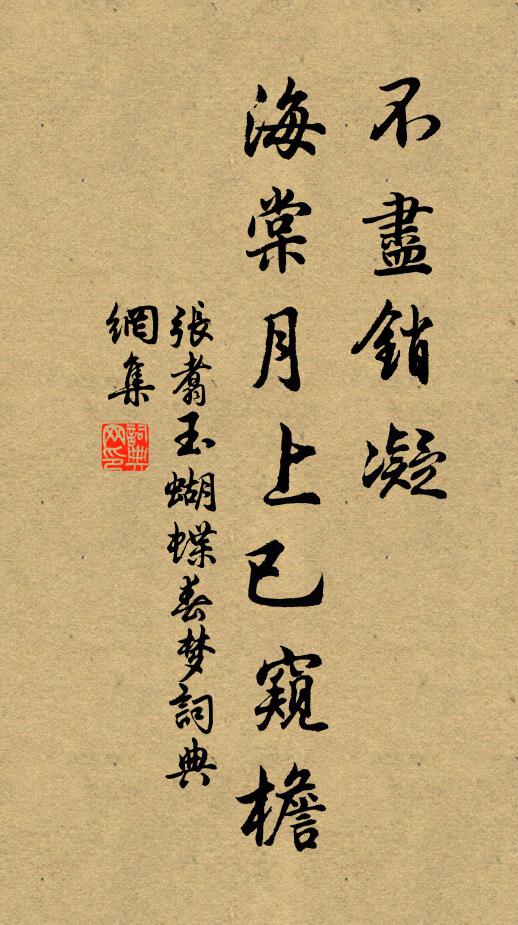 不盡銷凝
海棠月上已窺檐
張翥玉蝴蝶春梦詞典
網集
詞典
网印